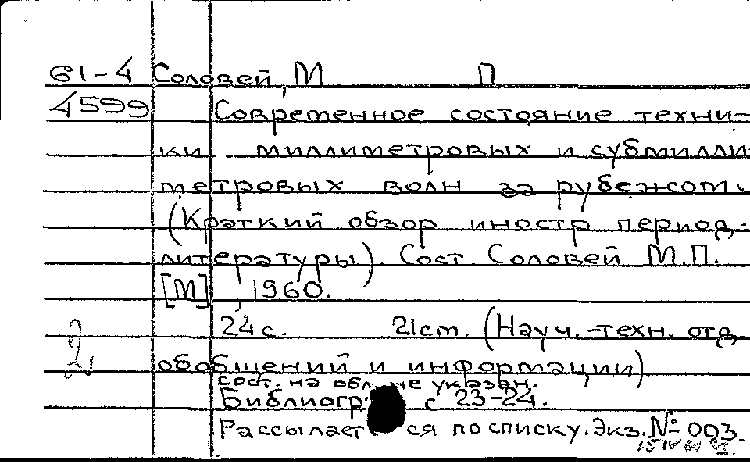 61-4 Соловей, М П
4599 Современное состояние техни-
ки миллиметровых и субмилли
метровых волн за рубежом.
(Краткий обзор иностр период.
литературы). Сост. Соловей М.П.
[М], 1960.
24 с. 21 ст. (Науч.-техн. отд.
обобщений и информации)
сост. на обл. не указан.
Библиогр: с 23-24.
Рассылается по списку. Экз. № 003.